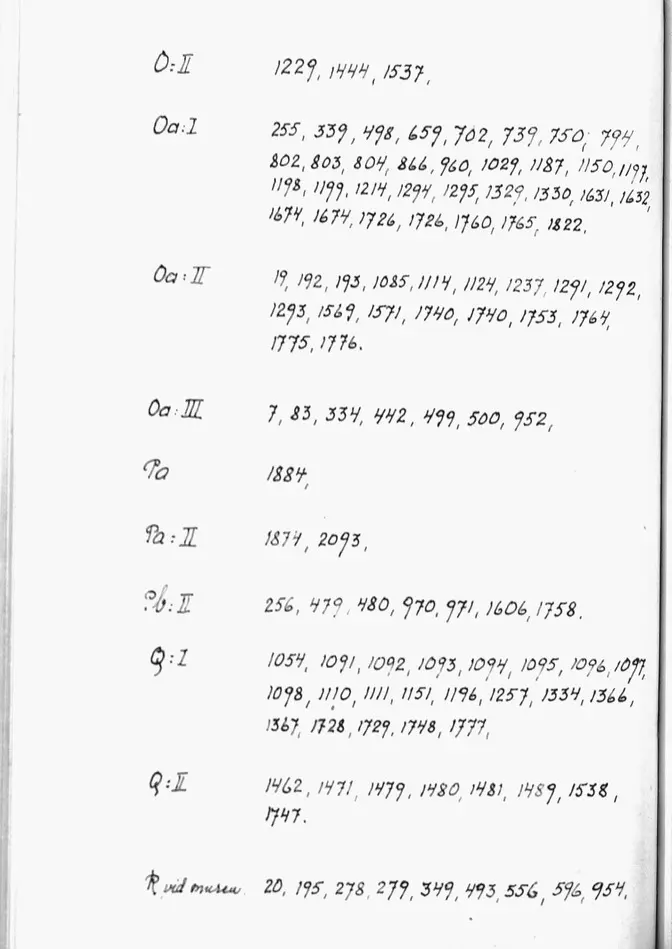 O:II 1229, 1444, 1537,
Oa:I 255, 339, 498, 659, 702, 739, 750, 794,
802, 803, 804, 866, 960, 1029, 1187, 1150, 1197,
1198, 1199, 1214, 1294, 1295, 1329, 1330, 1631, 1632,
1674, 1674, 1726, 1726, 1760, 1765, 1822.
Oa:II 19, 192, 193, 1085, 1114, 1124, 1237, 1291, 1292,
1293, 1569, 1571, 1740, 1740, 1753, 1764,
1775, 1776.
Oa:III 7, 83, 334, 442, 499, 500, 952,
Pa 1884,
Pa:II 1874, 2093,
Pb:II 256, 479, 480, 970, 971, 1606, 1758.
Q:I 1054, 1091, 1092, 1093, 1094, 1095, 1096, 1097,
1098, 1110, 1111, 1151, 1196, 1257, 1334, 1366,
1367, 1728, 1729, 1748, 1777,
Q:II 1462, 1471, 1479, 1480, 1481, 1489, 1538,
1747.
R vid muren 20, 195, 278, 279, 349, 493, 556, 596, 954,